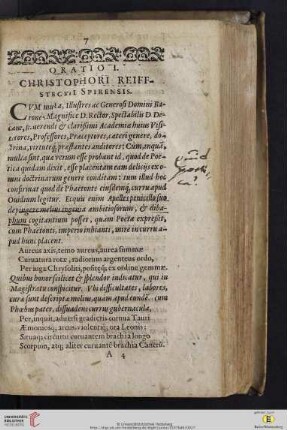 7
ORATIO I.
CHRISTOPHORI REIFF-
STECKII SPIRENSIS.
CVM multa, Illustres ac Generosi Domini Ba-
rones, Magnifice D. Rector, Spectabilis D. De-
cane, Reverendi & clarissimi Academiæ huius Pro-
fessores, Præceptores, cæteri genere, do-
ctrina, virtuteq; præstantes auditores: Cum, inquā,
multa sint, quæ verum esse probant id, quod de Poe-
tica quidam dixit, esse placentam eam deliciis ex o-
mni doctrinarum genere conditam: tum illud hoc
confirmat quod de Phaetontis eiusdemq; curru apud
Ovidium legitur. Etenim
cogitantium posset, quam Poeta expressit,
cum Phaetontis, imperio inhiantis, mire in curru a-
pud hunc placent.
Aureus axis, temo aureus, aurea summæ
Curvatura rotæ, radiorum argenteus ordo,
Per iuga Chrysoliti, positæq; ex ordine gemmæ.
Quibus honor solicet & splendor indicatur, qui in
Magistratu conspicitur. Vbi difficultates, labores,
cura sunt descripta melius, quam apud eundē. cum
Phœbus pater, dissuadens currus gubernacula,
Per, inquit, adversi gradieris cornua Tauri
Æmoniosq; arcus, violentiq; ora Leonis:
Sævaq; circuitu curvantem brachia longo
Scorpion, atq; aliter curvantē brachia Cancrū.
A 4